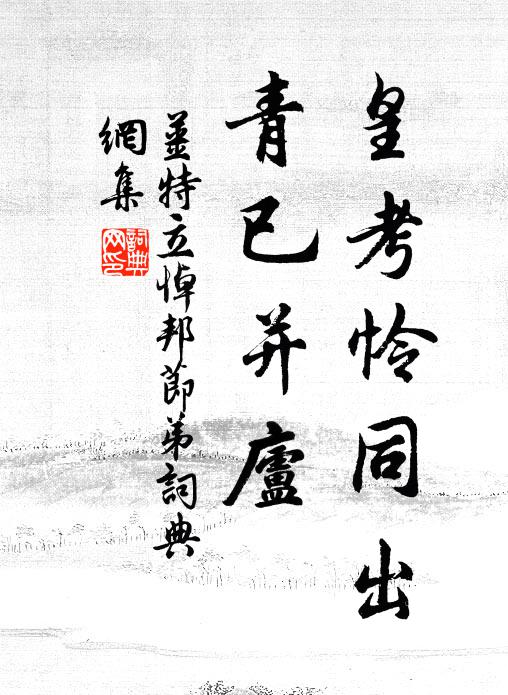 皇考怜同出
青已并廬
薑特立悼邦節弟詞典
網集
詞典
网印